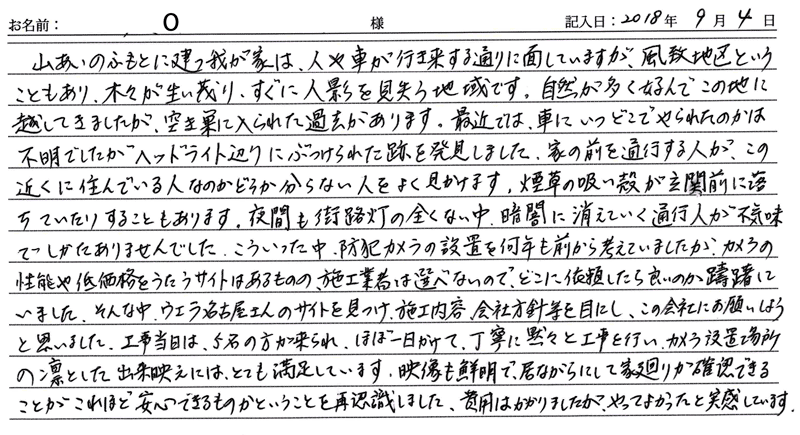 お名前： O 様 記入日：2018年 9月 4日
山あいのふもとに建つ我が家は、人や車が行き来する通りに面していますが、風致地区という
こともあり、木々が生い茂り、すぐに人影を見失う地域です。自然が多く好んでこの地に
越してきましたが、空き巣に入られた過去があります。最近では、車にいつどこでやられたのかは
不明でしたがヘッドライト辺りにぶつけられた跡を発見しました。家の前を通行する人が、この
近くに住んでいる人なのかどうか分らない人をよく見かけます。煙草の吸い殻が玄関前に落
ちていたりすることもあります。夜間も街路灯の全くない中、暗闇に消えていく通行人が不気味
でしかたありませんでした。こういった中、防犯カメラの設置を何年も前から考えていましたが、カメラの
性能や低価格をうたうサイトはあるものの、施工業者は選べないので、どこに依頼したら良いのか躊躇して
いました。そんな中、ウエラ名古屋さんのサイトを見つけ、施工内容、会社方針等を目にし、この会社にお願いしよう
と思いました。工事当日は、5名の方が来られ、ほぼ一日がけで、丁寧に黙々と工事を行い、カメラ設置場所
の凛とした出来映えには、とても満足しています。映像も鮮明で、居ながらにして家廻りが確認できる
ことがこれほど安心できるものかということを再認識しました。費用はかかりましたが、やってよかったと実感しています。